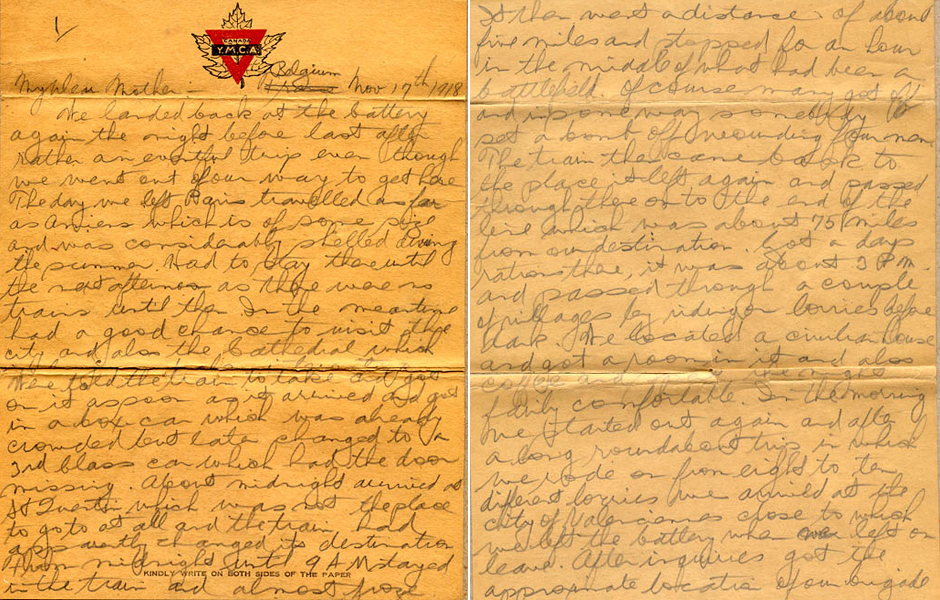 1/
CANADA
Y.M.C.A.
Belgium
My Dear Mother - France Nov 17th 1918
We landed back at the battery
again the night before last after
rather an eventful trip even though
we went out of our way to get here
The day we left Paris travelled as far
as Amiens which is of some size
and was considerably shelled during
the summer. Had to stay there until
the next afternoon as there were no
trains until then In the meantime
had a good chance to visit the
city and also the Cathedral which
were told the train to take and got
on it as soon as it arrived and got
in a box car which was already
crowded but later changed to a
3rd Class car which had the door
missing. About midnight arrived at
St Quentin which was not the place
to go to at all and the train had
apparently changed its destination
From midnight until 9 A M stayed
in the train and almost froze
KINDLY WRITE ON BOTH SIDES OF THE PAPER
It then went a distance of about
five miles and stopped for an hour
in the middle of what had been a
battlefield. Of course many got off
and in some way somebody
set a bomb off wounding four men
The train then came back to
the place it left again and passed
through there on to the end of the
line which was about 75 miles
from our destination. Got a days
rations there, it was about 3 P.M.
and passed through a couple
of villages by riding on lorries before
dark. We located a civilian house
and got a room in it and also
coffee and the night
fairly comfortable. In the morning
we started out again and after
a long roundabout trip in which
we rode on from eight to ten
different lorries we arrived at the
city of Valenciennes close to which
we left the battery when left on
leave. After inquiries got the
approximate location of our brigade